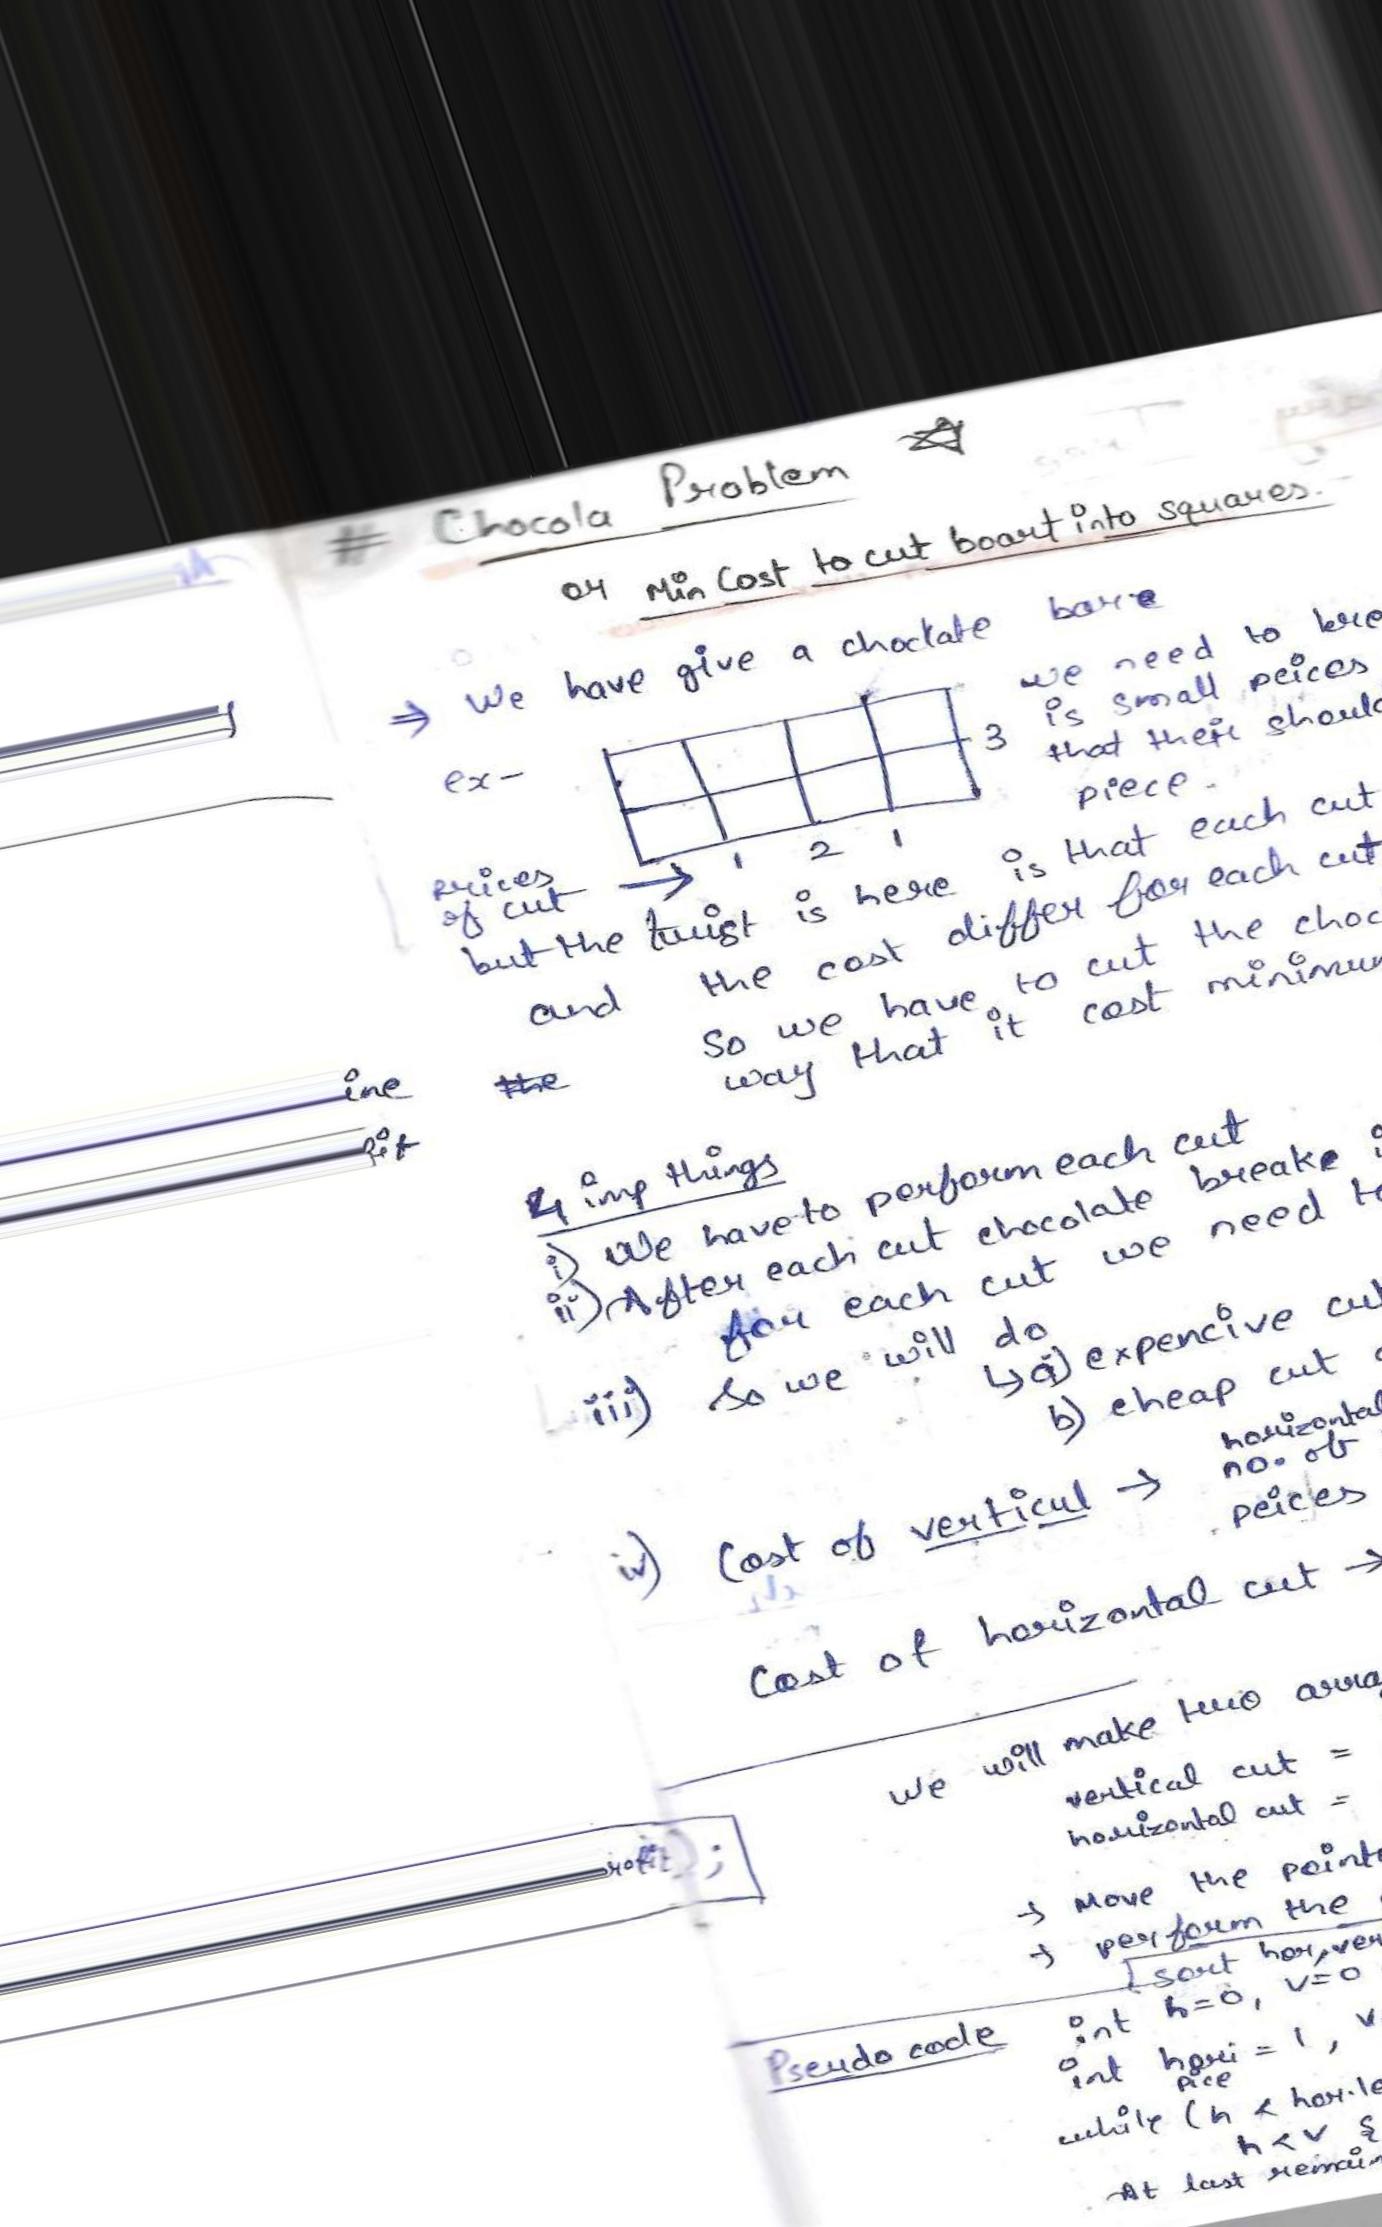 # Chocola Problem
or Min Cost to cut boart into squares.
⇒ We have give a choclate bare
we need to bre
is small peices
ex-
3
that their should
piece.
1 2 1
prices
of cut →
but the twist is here is that each cut
and the cost differ for each cut
So we have to cut the choc
way that it cost minimum
ine
fit
the
4 imp things
i) We have to perform each cut
ii) After each cut chocolate breake i
for each cut we need to
iii) So we will do
↳ a) expencive cut
b) cheap cut
iv) Cost of vertical →
horizontal
no. of
peices
Cost of horizontal cut →
we will make two arra
vertical cut =
horizontal cut =
rofit);
→ Move the pointe
→ perform the
sort hor, ver
Pseudo code
int h=0, v=0
int hori = 1, v
pice
while (h < hor.le
h < v
At last remain